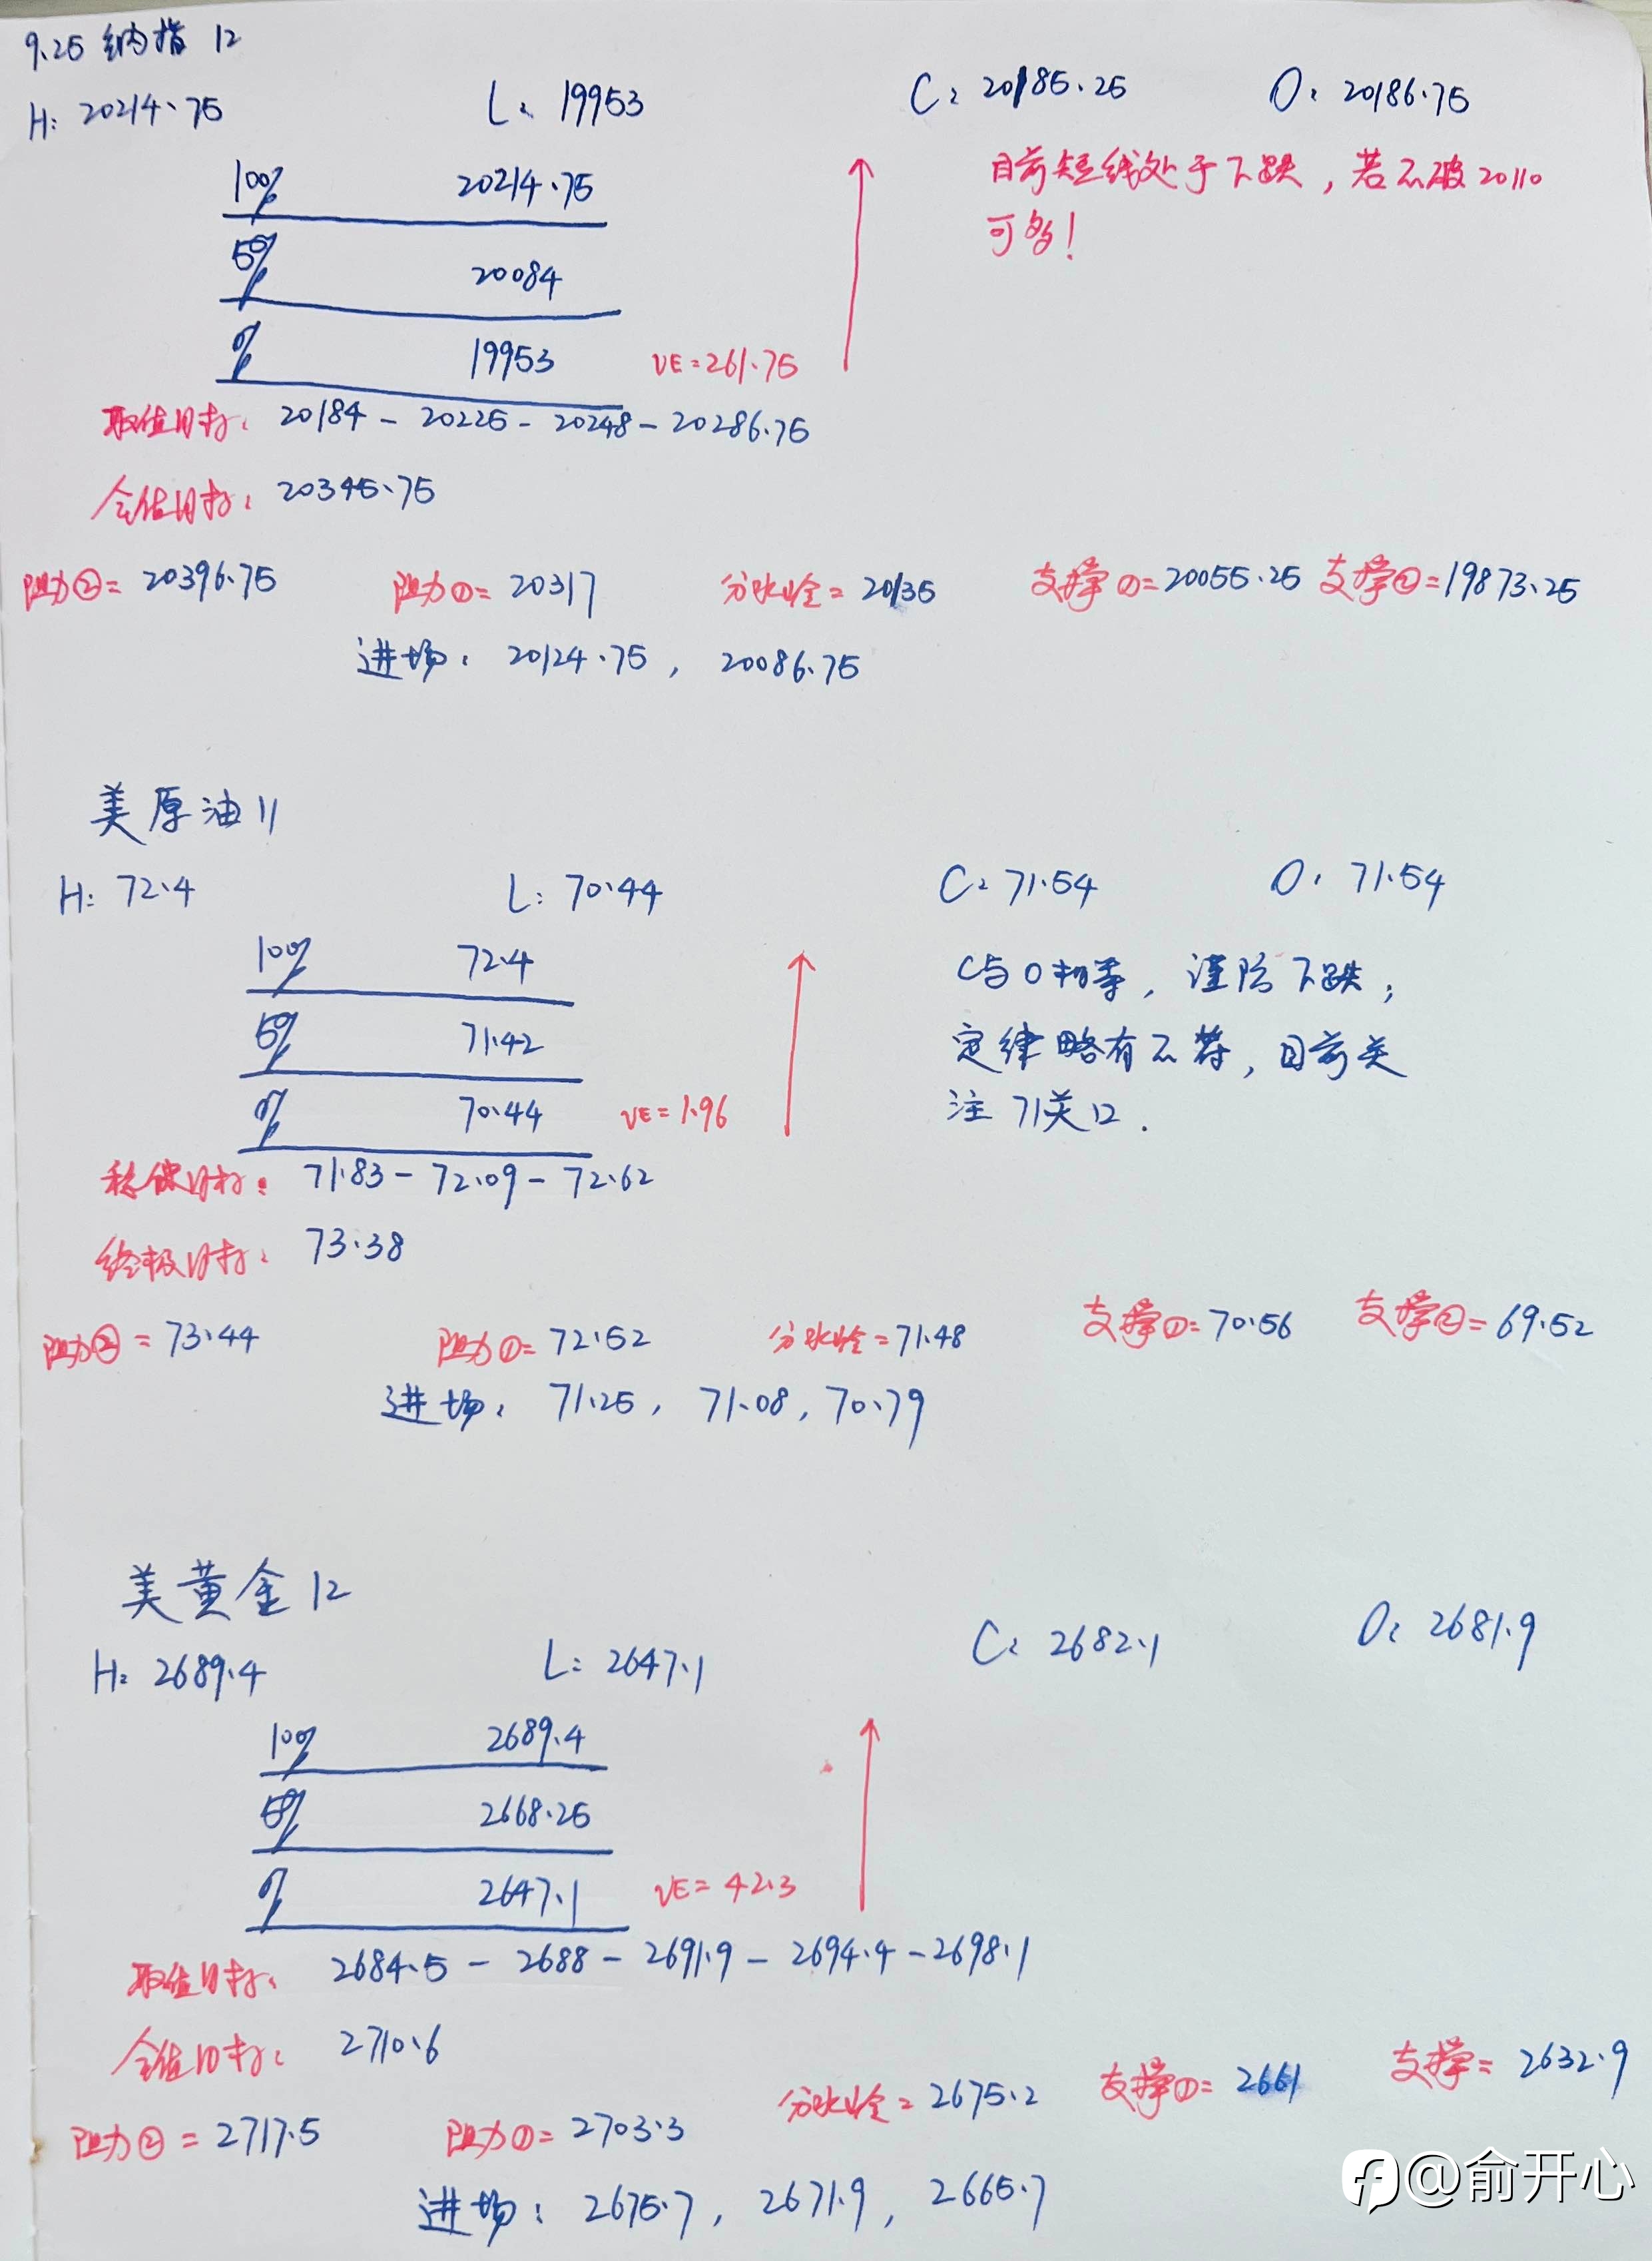 9.25 纳指12
H: 20214.75 L: 19953 C: 20185.25 O: 20186.75
目前短线处于下跌，若不破20110
可多！
100% 20214.75
50% 20084
0% 19953 VE=261.75
取值目标: 20184 - 20225 - 20248 - 20286.75
全值目标: 20345.75
阻力②= 20396.75 阻力①= 20317 分水岭= 20135 支撑①=20055.25 支撑②=19873.25
进场: 20124.75, 20086.75
美原油11
H: 72.4 L: 70.44 C: 71.54 O: 71.54
100% 72.4
C与O相等，谨防下跌；
50% 71.42
定律略有不符，目前关
0% 70.44 VE=1.96
注71关口.
稳健目标: 71.83 - 72.09 - 72.62
终极目标: 73.38
阻力②= 73.44 阻力①= 72.52 分水岭=71.48 支撑①=70.56 支撑②=69.52
进场: 71.25, 71.08, 70.79
美黄金12
H: 2689.4 L: 2647.1 C: 2682.1 O: 2681.9
100% 2689.4
50% 2668.25
0% 2647.1 VE=42.3
取值目标: 2684.5 - 2688 - 2691.9 - 2694.4 - 2698.1
全值目标: 2710.6
阻力②= 2717.5 阻力①= 2703.3 分水岭= 2675.2 支撑①= 2661 支撑= 2632.9
进场: 2675.7, 2671.9, 2665.7
@俞开心